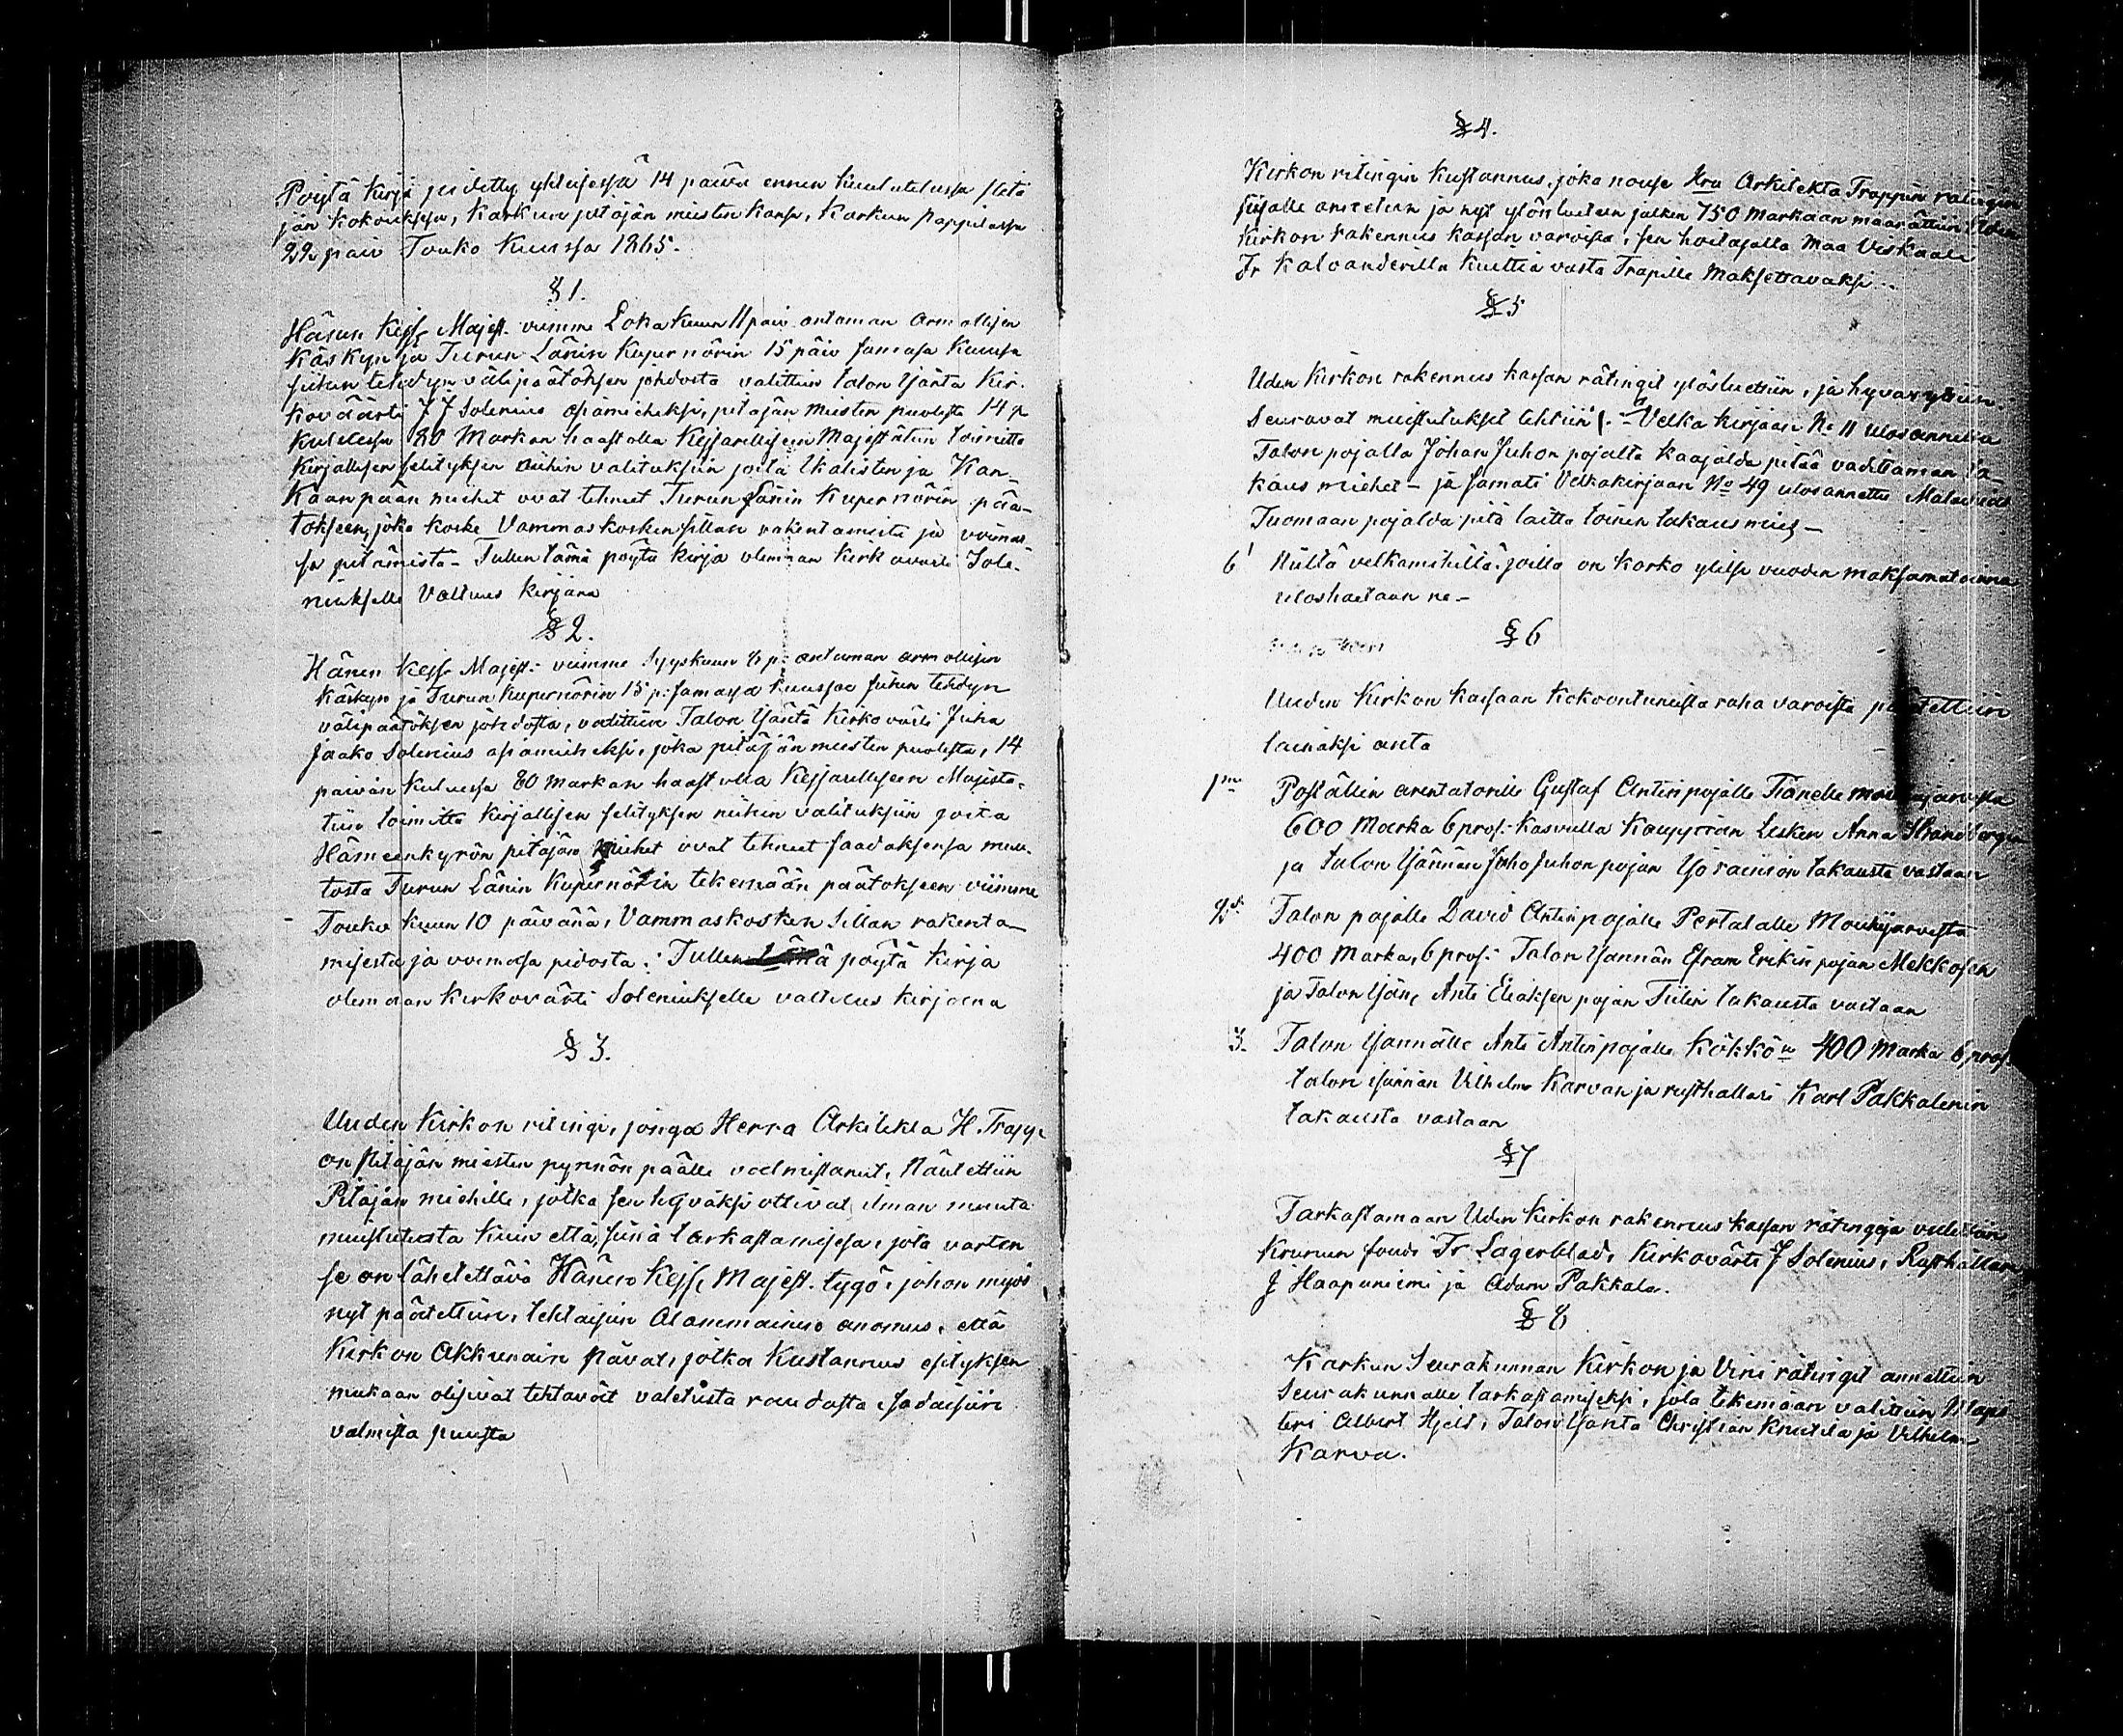 Pöytä kirja pidetty yhteisessä 14 päivä ennen kuulutetussa pitä
jän kokouksessa, Karkun pitäjän miesten kansa, Karkun pappilassa
22 päiv Touko Kuussa 1865.
§ 1.
Hänen Keiss Majest. viimme Loka Kuun 11 päiv antaman armollisen
käskyn ja Turun Länin Kupernörin 15 päiv samasa Kuussa
siihen tehdyn välipäätöksen johdosta valittiin talon Isäntä Kir-
kovääsri J J Solenius asiamieheksi, pitäjän miesten puolesta 14 p
kuluessa 80 Markan haastolla Keisarilliseen Majestätiin toimitta
kirjallisen selityksen niihin valituksiin joita Ikalisten ja Kan-
kaanpään miehet ovat tehneet Turun Länin Kupernörin pää-
tökseen, joka koske Vammaskosken sillan rakentamista ja voimas-
sa pitämistä - Tullen tämä pöytä kirja olemaan Kirkovärti Sole-
niukselle Valtuus kirjana
§ 2.
Hänen Keiss Majest: viimme Syyskuun p: antaman armollisen
käskyn ja Turun Kupernörin 15 p: samassa kuussa siihen tehdyn
välipäätöksen johdosta, valittiin Talon Isäntä Kirkovärti Juha
Jaako Solenius asiamieheksi, joka pitäjän miesten puolesta, 14
päivän kuluessa 80 markan haastolla Keisarilliseen Majestä-
tiin toimitta kirjallisen selityksen niihin valituksiin joita
Hämeenkyrön pitäjän miehet ovat tehneet saadaksensa muu-
tosta Turun Länin Kupernörin tekemään päätökseen viimme
Touko kuun 10 päivänä, Vammaskosken Sillan rakenta-
misesta ja voimasa pidosta. Tullen tämä pöytä kirja
olemaan Kirkovärti Soleniukselle valtuus kirjana
§ 3.
Uuden Kirkon ritingi, jonga Herra Arkitekta H. Trapp
on pitäjän miesten pynnön päälle valmistanut, näutettiin
Pitäjän miehille, jotka sen hyväksi ottivat ilman muuta
muistutusta kuin että, siinä tarkastamisesa, jota varten
se on lähetettävä Hänen Keiss Majest. tygö, johon myös
nyt päätettiin, tehtäisiin Alammainen anomus, että
Kirkon Akkunain pävat, jotka Kustannus esityksen
mukaan olisivat tehtävät valetusta raudasta, sadaisiin
valmista puusta
§ 4.
Kirkon ritingin kustannus, joka nouse Hra Arkitekta Trappin rätingin
sisalle annetun ja nyt ylön luetun jälken 750 Markaan maarättiin Uden
Kirkon rakennus kassan varoista, sen hoitajalla Maa Viskaali
Fr Kalvanderilla kuittia vasta Trapille Maksettavaksi.
§ 5
Uden Kirkon rakennus kassan rätingit ylösluettiin, ja hyväxyttiin.
Seuravat muistutukset tehtiin 1. a Velka kirjaan No 11 ulosannettu
Talon pojalla Johan Juhon pojalta Kaajalda pitää vadittaman ta-
kaus miehet - ja samati Velkakirjaan No 49 ulosannettu
Tuomaan pojalda pitä laitta toinen takaus mies -
b Niiltä velkamiehiltä, joilla on korko ylitse vuoden maksamatoinna
uloshaetaan ne -
§ 6
Uuden Kirkon kassaan kokoontuneista raha varoista päätettiin
lainaksi anta
1mo Poställin arentatorille Gustaf Antinpojalle Tianelle
600 Marka 6 pros: kasvulla Kauppian Lesken Anna Strandbergin
ja talon Isännän Juho Juhon pojan Iso rainion takausta vastaan
2do Talon pojalle David Antinpojalle Pertalalle Mouhijarvesta
400 Marka, 6 pros:- Talon Isännän Efram Erikin pojan Mekkosen
ja Talon Isän, Anti Eliaksen pojan Tiilin takausta vastaan
3. Talon Isännälle Anti Antinpojalle Kökkön 400 Marka 6 pros
talon isännän Vilhelm Karvan ja rusthallari Karl Pakkalenin
takausta vastaan
§ 7
Tarkastamaan Uden kirkon rakennus kassan rätingeja valittiin
Krunun foudi Fr Lagerblad, Kirkovärti J Solenius, Rusthallari
J Haapaniemi ja Adam Pakkala.
§ 8
Karkun Seurakunnan Kirkon ja Vini rätingit annettiin
Seurakunnalle tarkastamiseksi, jota tekemään valittiin Maps
teri Albert Hjelt, Talon Isanta Christian Knutila ja Vilhelm
Karva.